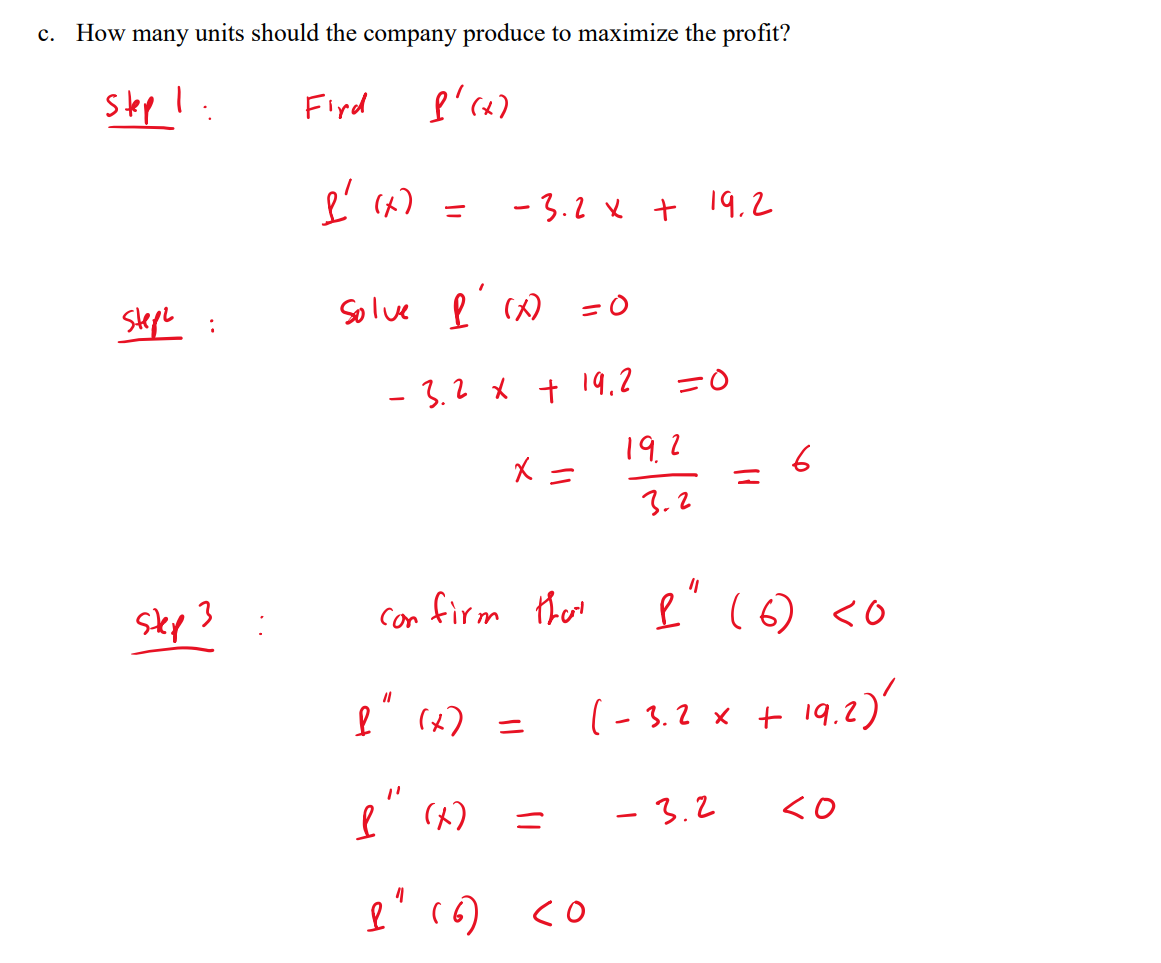 c. How many units should the company produce to maximize the profit?
Step 1 : Find P'(x)
P'(x) = -3.2 x + 19.2
Step 2 : Solve P'(x) = 0
-3.2 x + 19.2 = 0
x = 19.2 / 3.2 = 6
Step 3 : confirm that P''(6) < 0
P''(x) = (-3.2 x + 19.2)'
P''(x) = -3.2 < 0
P''(6) < 0